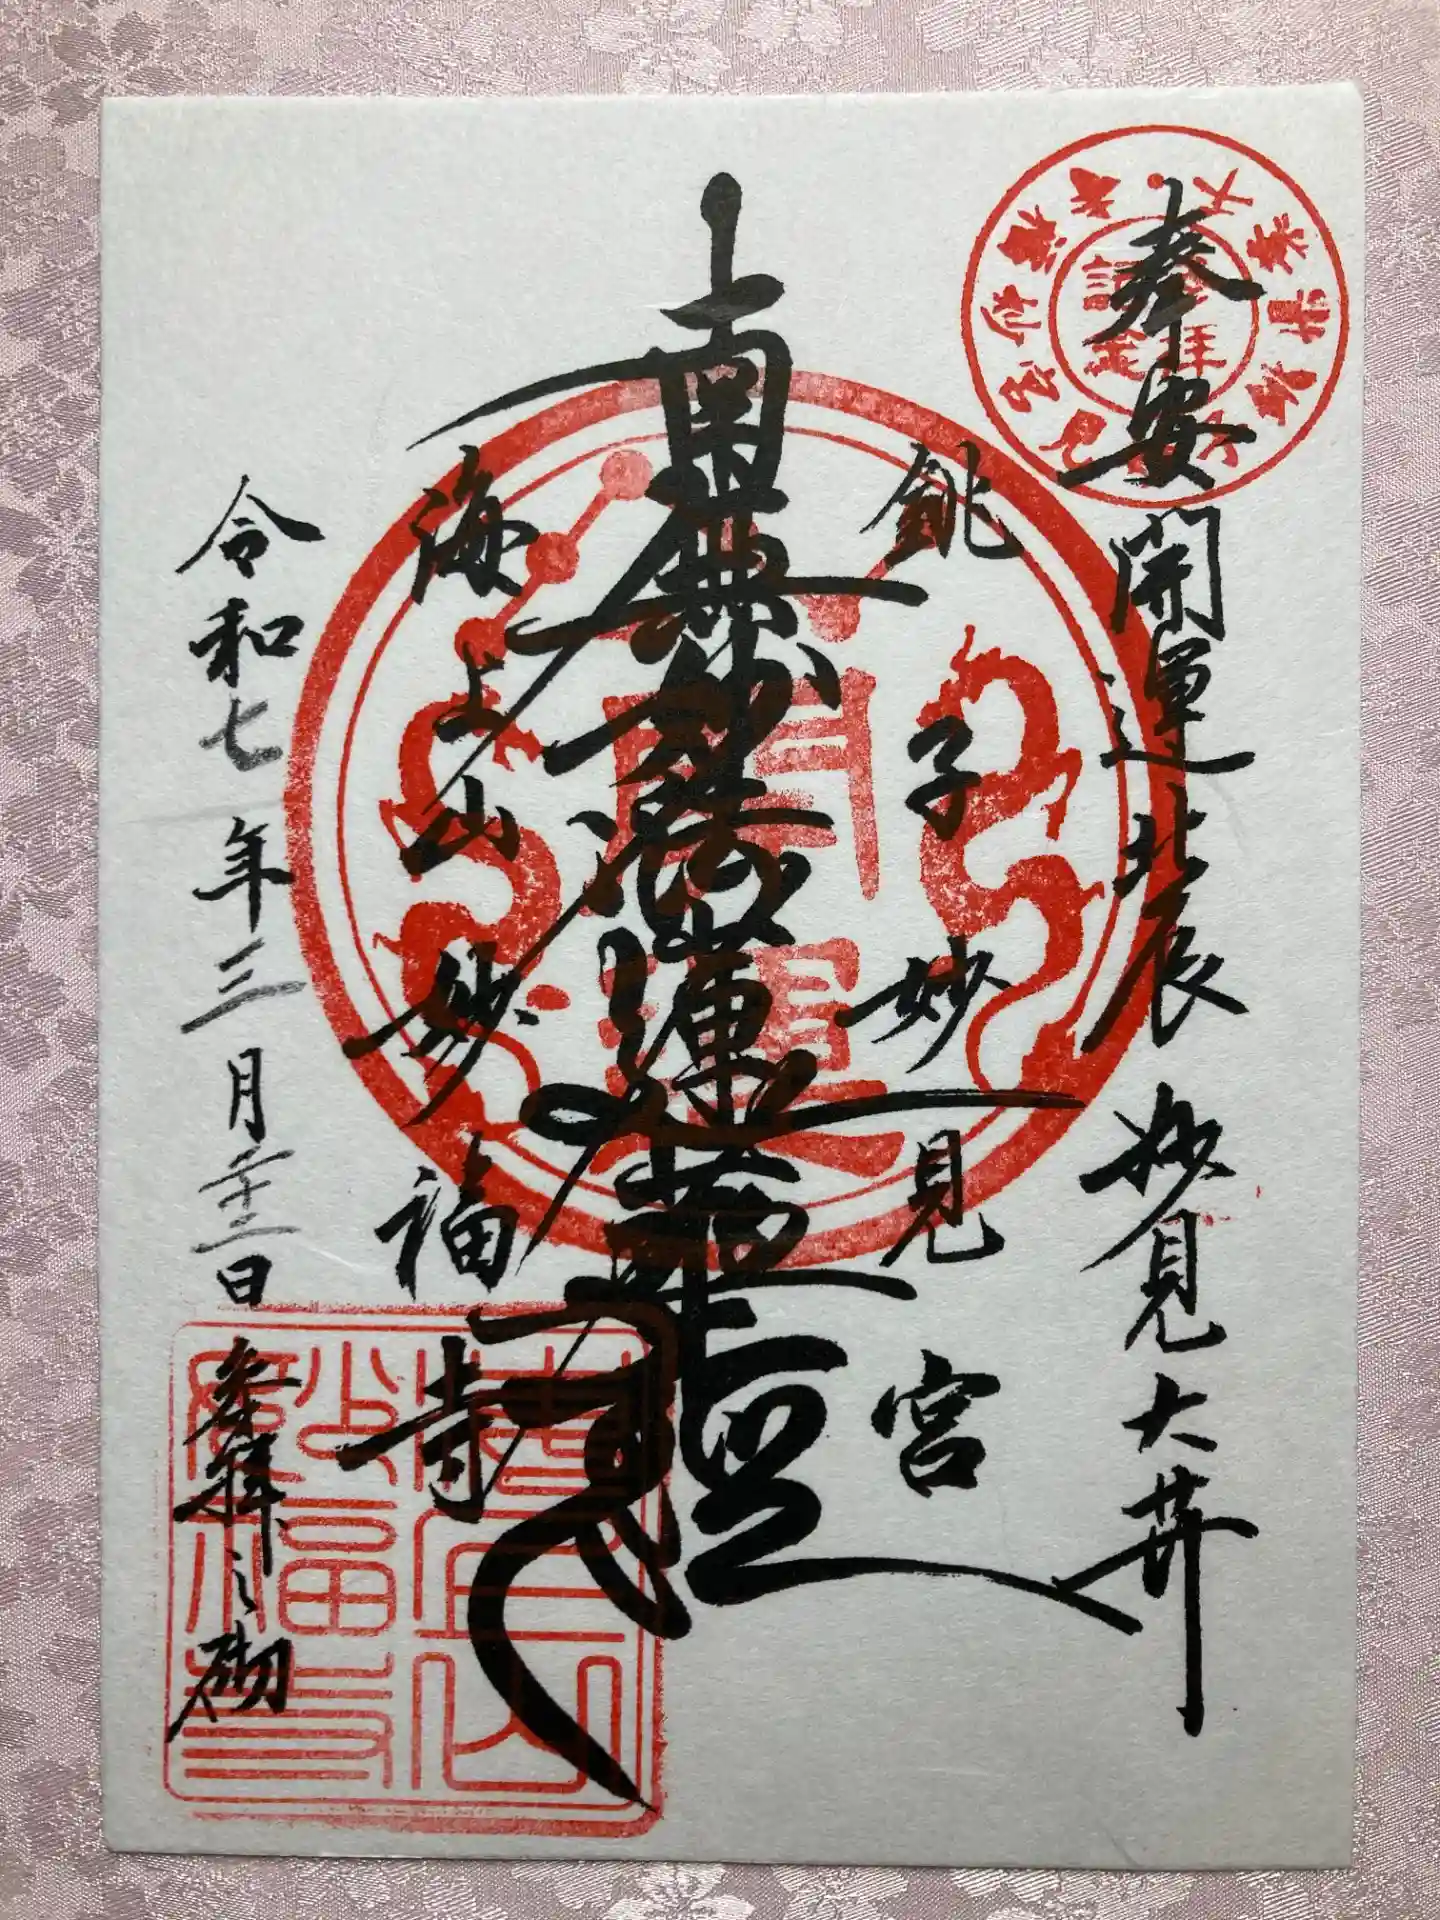 奉安開運北辰妙見大井
銚子妙見宮
南無妙法蓮華経
開運
海上山妙福寺
令和七年三月二十二日参拝之砌
海上山
妙福